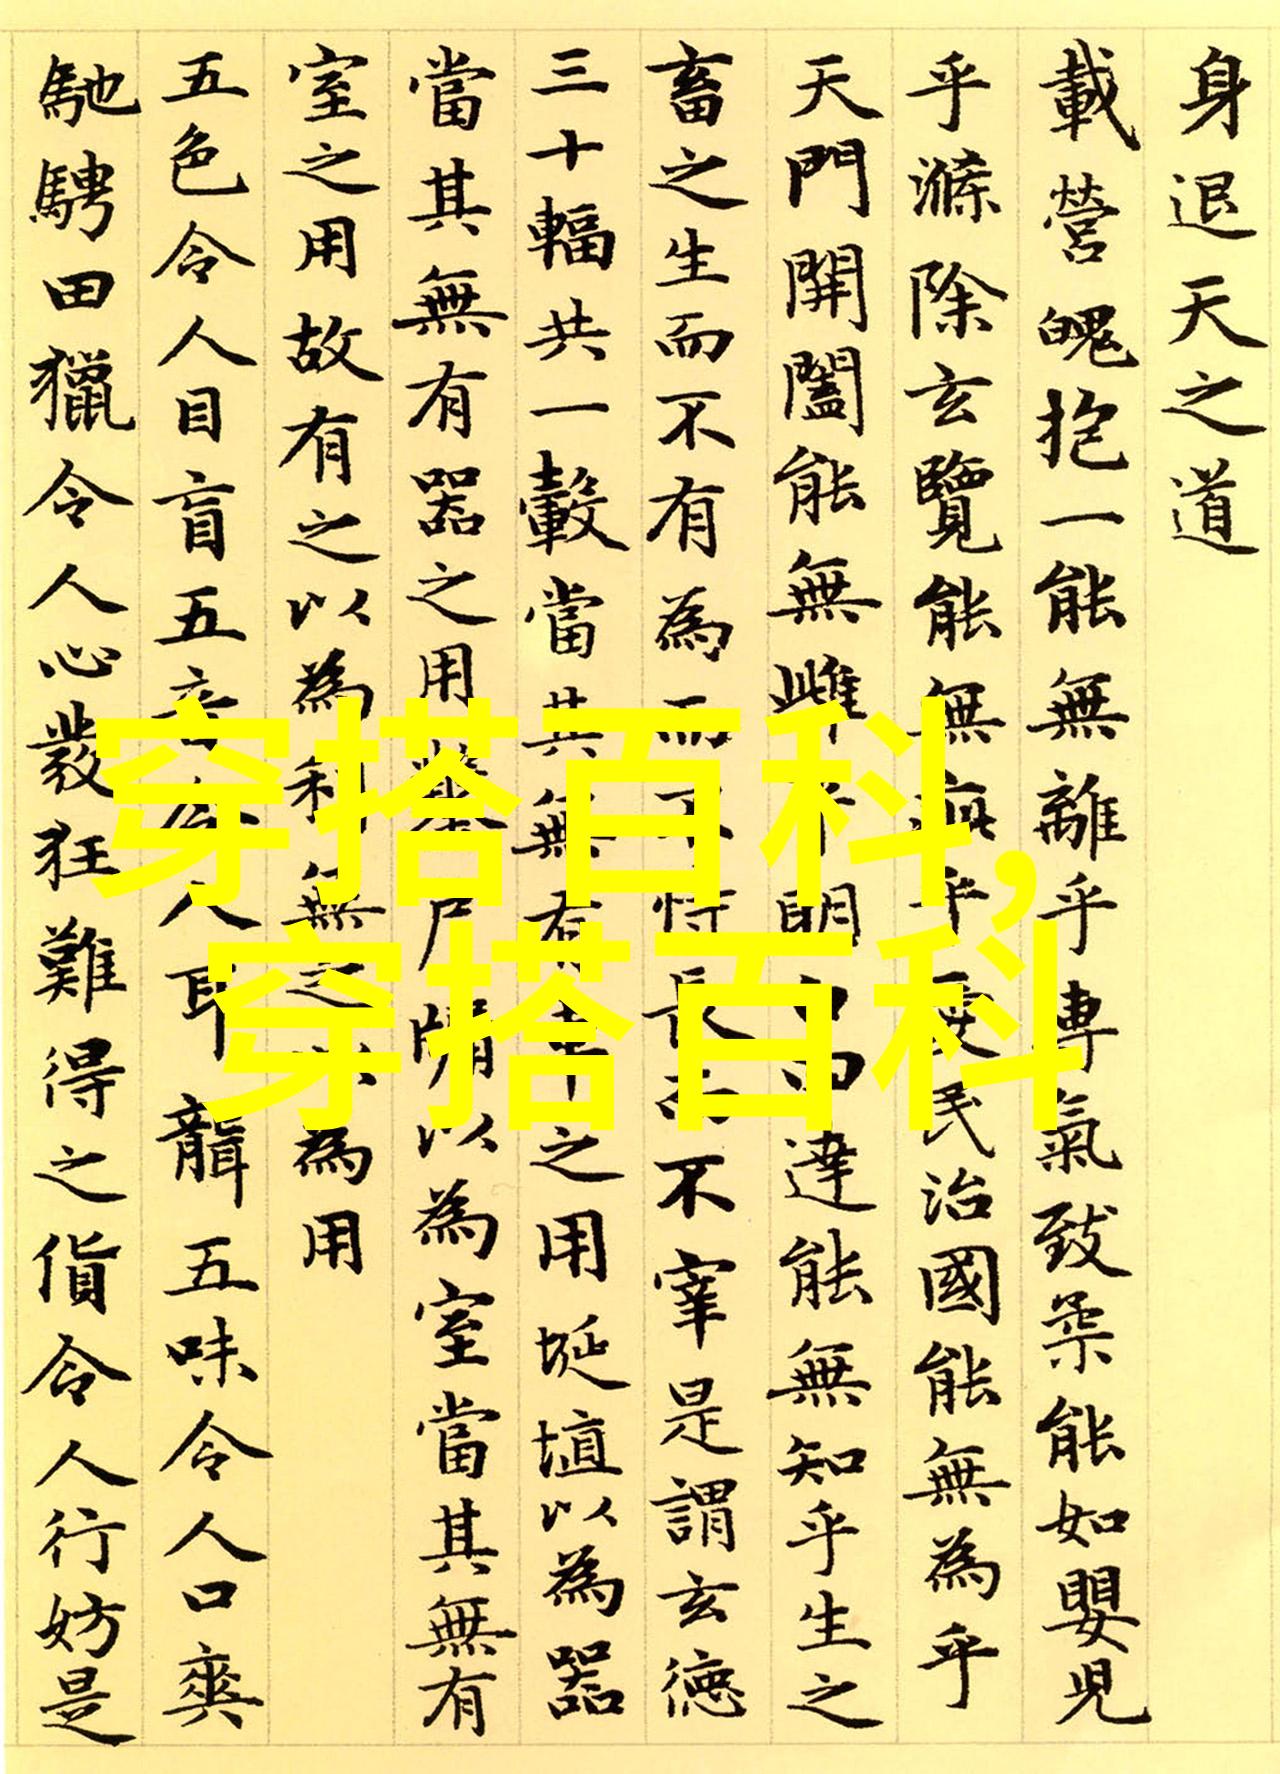 身退天之道
載營魄抱一能無離乎專氣致柔能如嬰兒
乎滌除玄覽能無疵乎愛民治國能無為乎
天門開闔能無雌乎明白四達能無知乎生之
畜之生而不有為而不恃長而不宰是謂玄德
三十輻共一轂當其無有車之用埏埴以為器
當其無有器之用鑿戶牖以為室當其無有
室之用故有之以為利無之以為用
五色令人目盲五音令人耳聾五味令人口爽
馳騁田獵令人心發狂難得之貨令人行妨是
穿搭百科,
穿搭百科